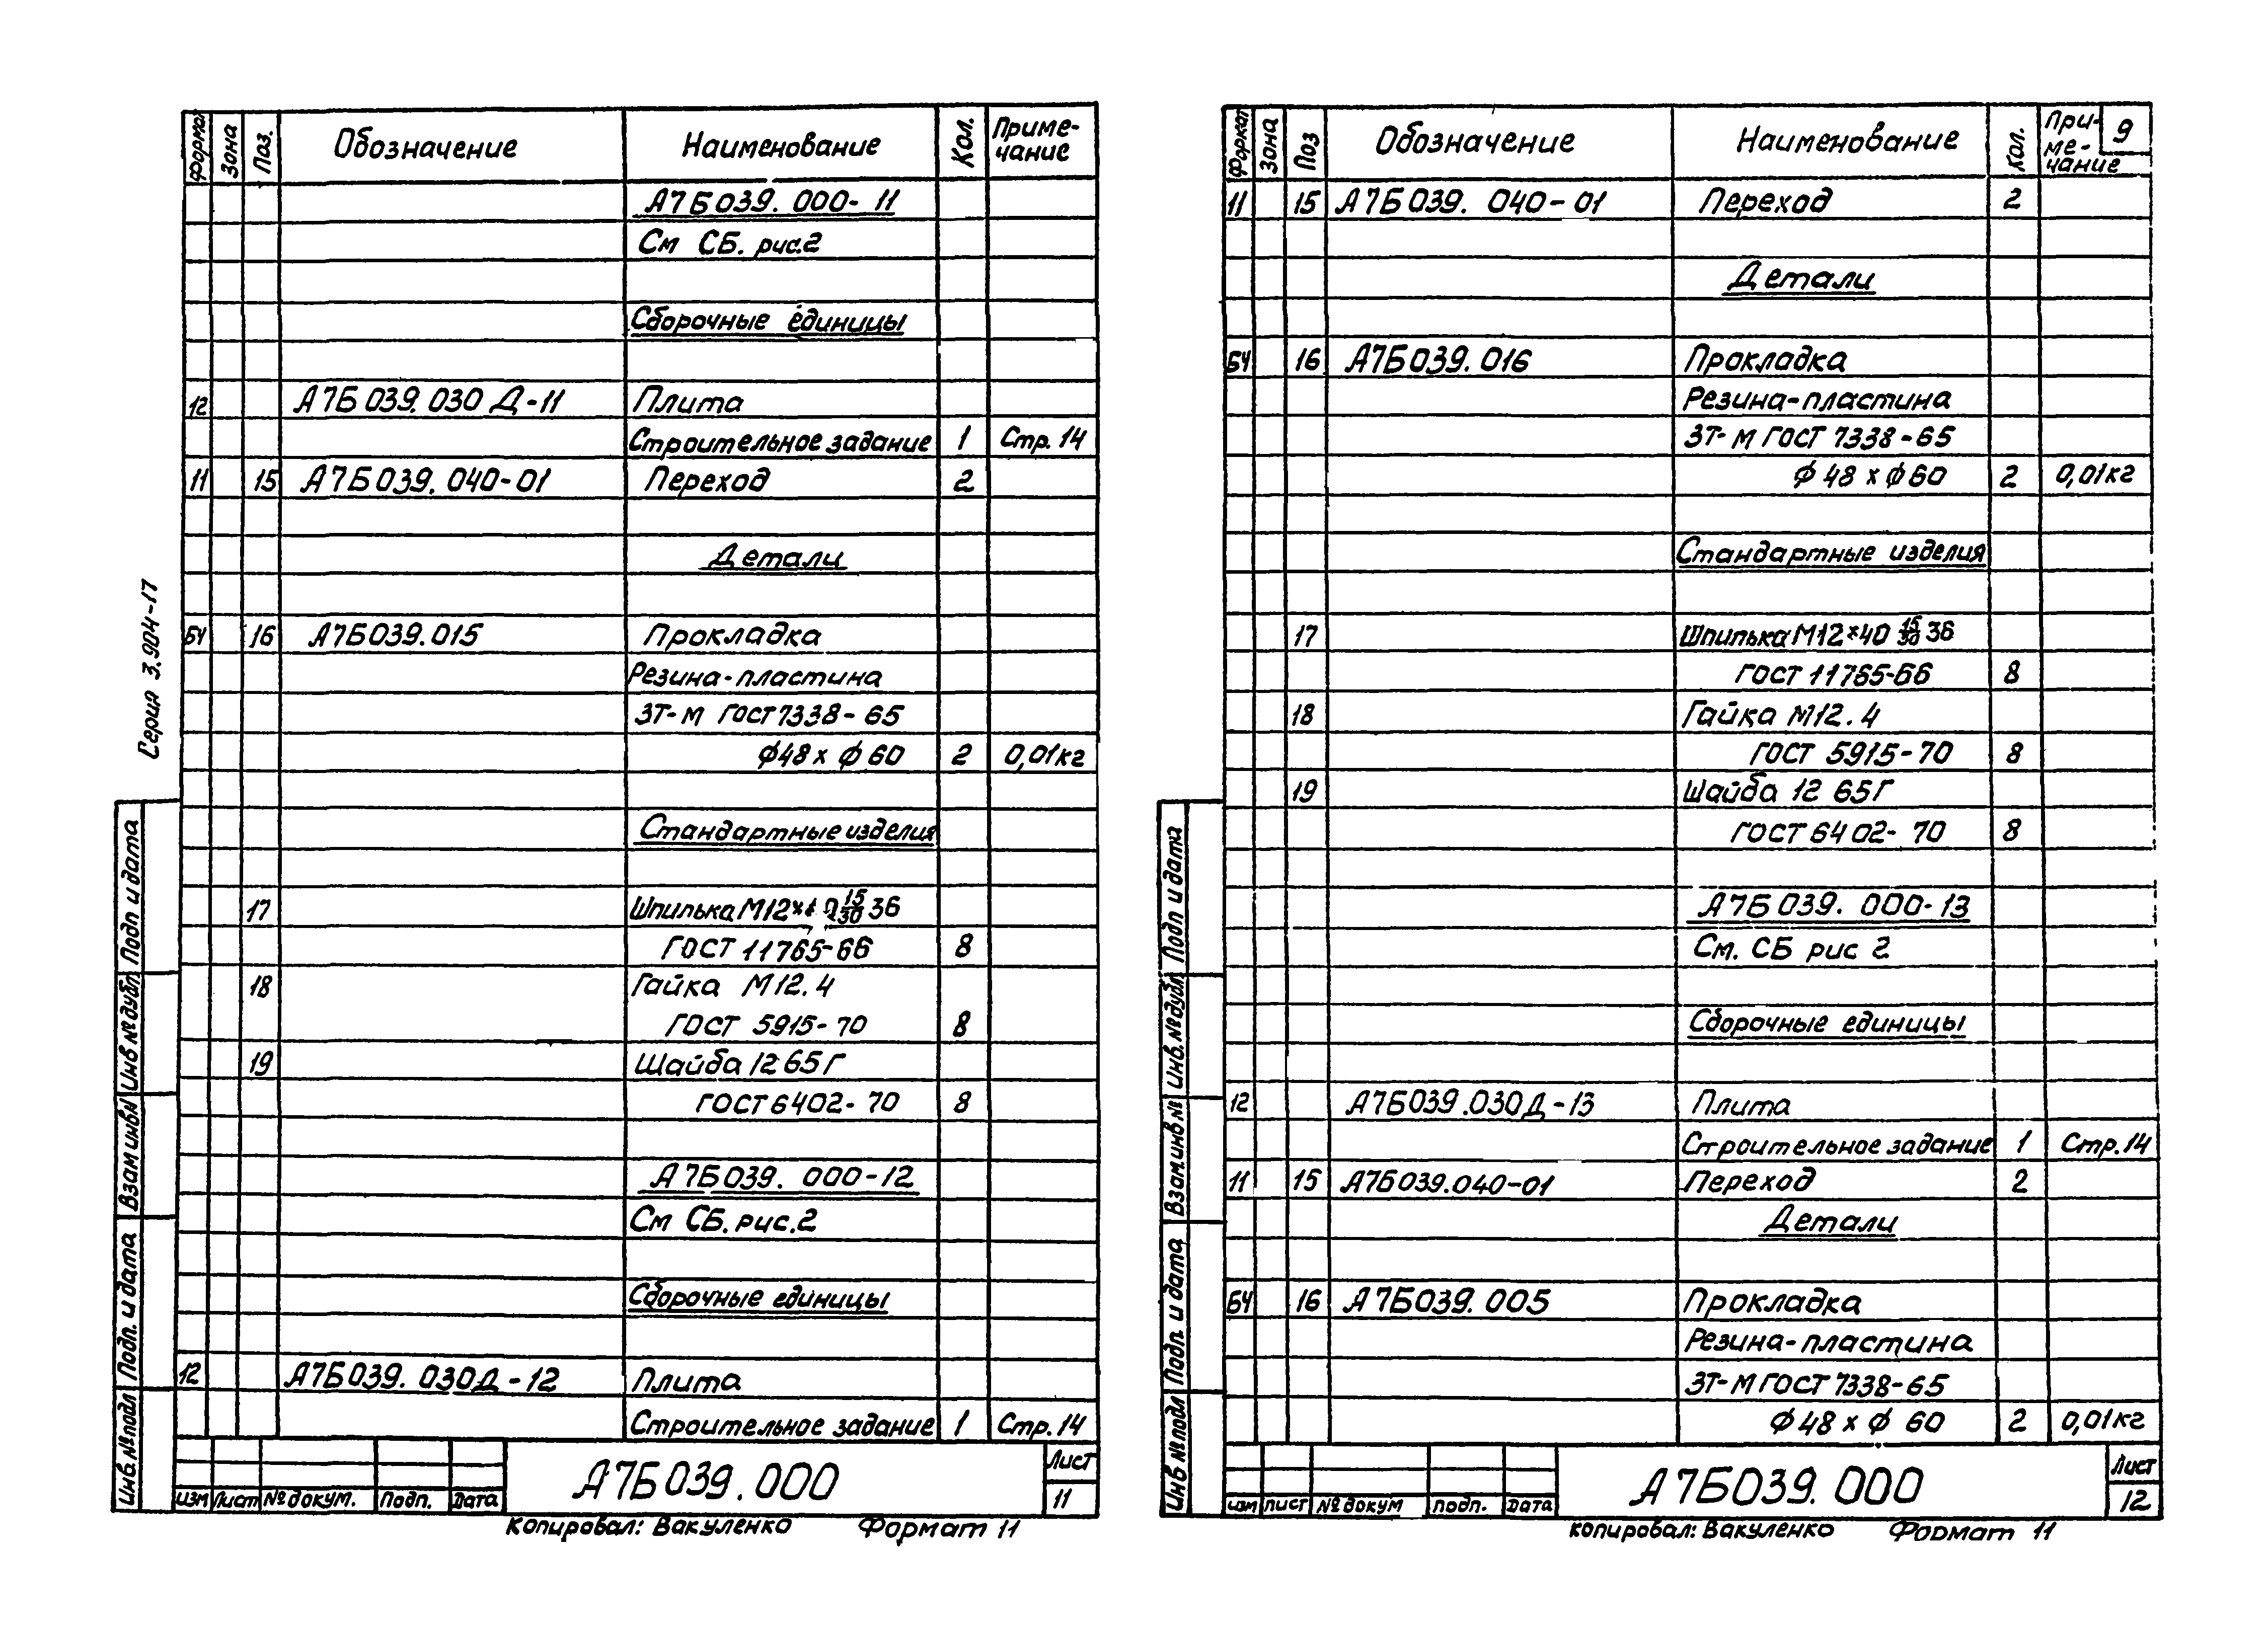 Формат Зона Поз. Обозначение Наименование Кол. Приме-
чание
А7Б039.000-11
См СБ. рис.2
Сборочные единицы
12 А7Б039.030 Д-11 Плита
Строительное задание 1 Стр. 14
11 15 А7Б039.040-01 Переход 2
Детали
БЧ 16 А7Б039.015 Прокладка
Резина-пластина
3Т-М ГОСТ 7338-65
ф48 х ф 60 2 0,01кг
Стандартные изделия
17 Шпилька М12× 15/30 36
ГОСТ 11765-66 8
18 Гайка М12.4
ГОСТ 5915-70 8
19 Шайба 12 65Г
ГОСТ 6402-70 8
А7Б039.000-12
См СБ. рис.2
Сборочные единицы
12 А7Б039.030Д-12 Плита
Строительное задание 1 Стр.14
Серия 3.904-17
Подп и дата
Инв № дубл
Взам инв №
Подп. и дата
Инв № подл
Изм Лист № докум. Подп. Дата
А7Б039.000
Лист
11
Копировал: Вакуленко Формат 11
Формат Зона Поз Обозначение Наименование Кол. При-
ме-
чание
9
11 15 А7Б039.040-01 Переход 2
Детали
БЧ 16 А7Б039.016 Прокладка
Резина-пластина
3Т-М ГОСТ 7338-65
ф 48 х ф 60 2 0,01кг
Стандартные изделия
17 Шпилька М12×40 15/30 36
ГОСТ 11765-66 8
18 Гайка М12.4
ГОСТ 5915-70 8
19 Шайба 12 65Г
ГОСТ 6402-70 8
А7Б039.000-13
См. СБ рис 2
Сборочные единицы
12 А7Б039.030Д-13 Плита
Строительное задание 1 Стр.14
11 15 А7Б039.040-01 Переход 2
Детали
БЧ 16 А7Б039.005 Прокладка
Резина-пластина
3Т-М ГОСТ 7338-65
ф 48 х ф 60 2 0,01кг
Подп и дата
Инв. № дубл
Взам.инв №
Подп. и дата
Инв № подл
Изм Лист № докум Подп. Дата
А7Б039.000
Лист
12
Копировал: Вакуленко Формат 11